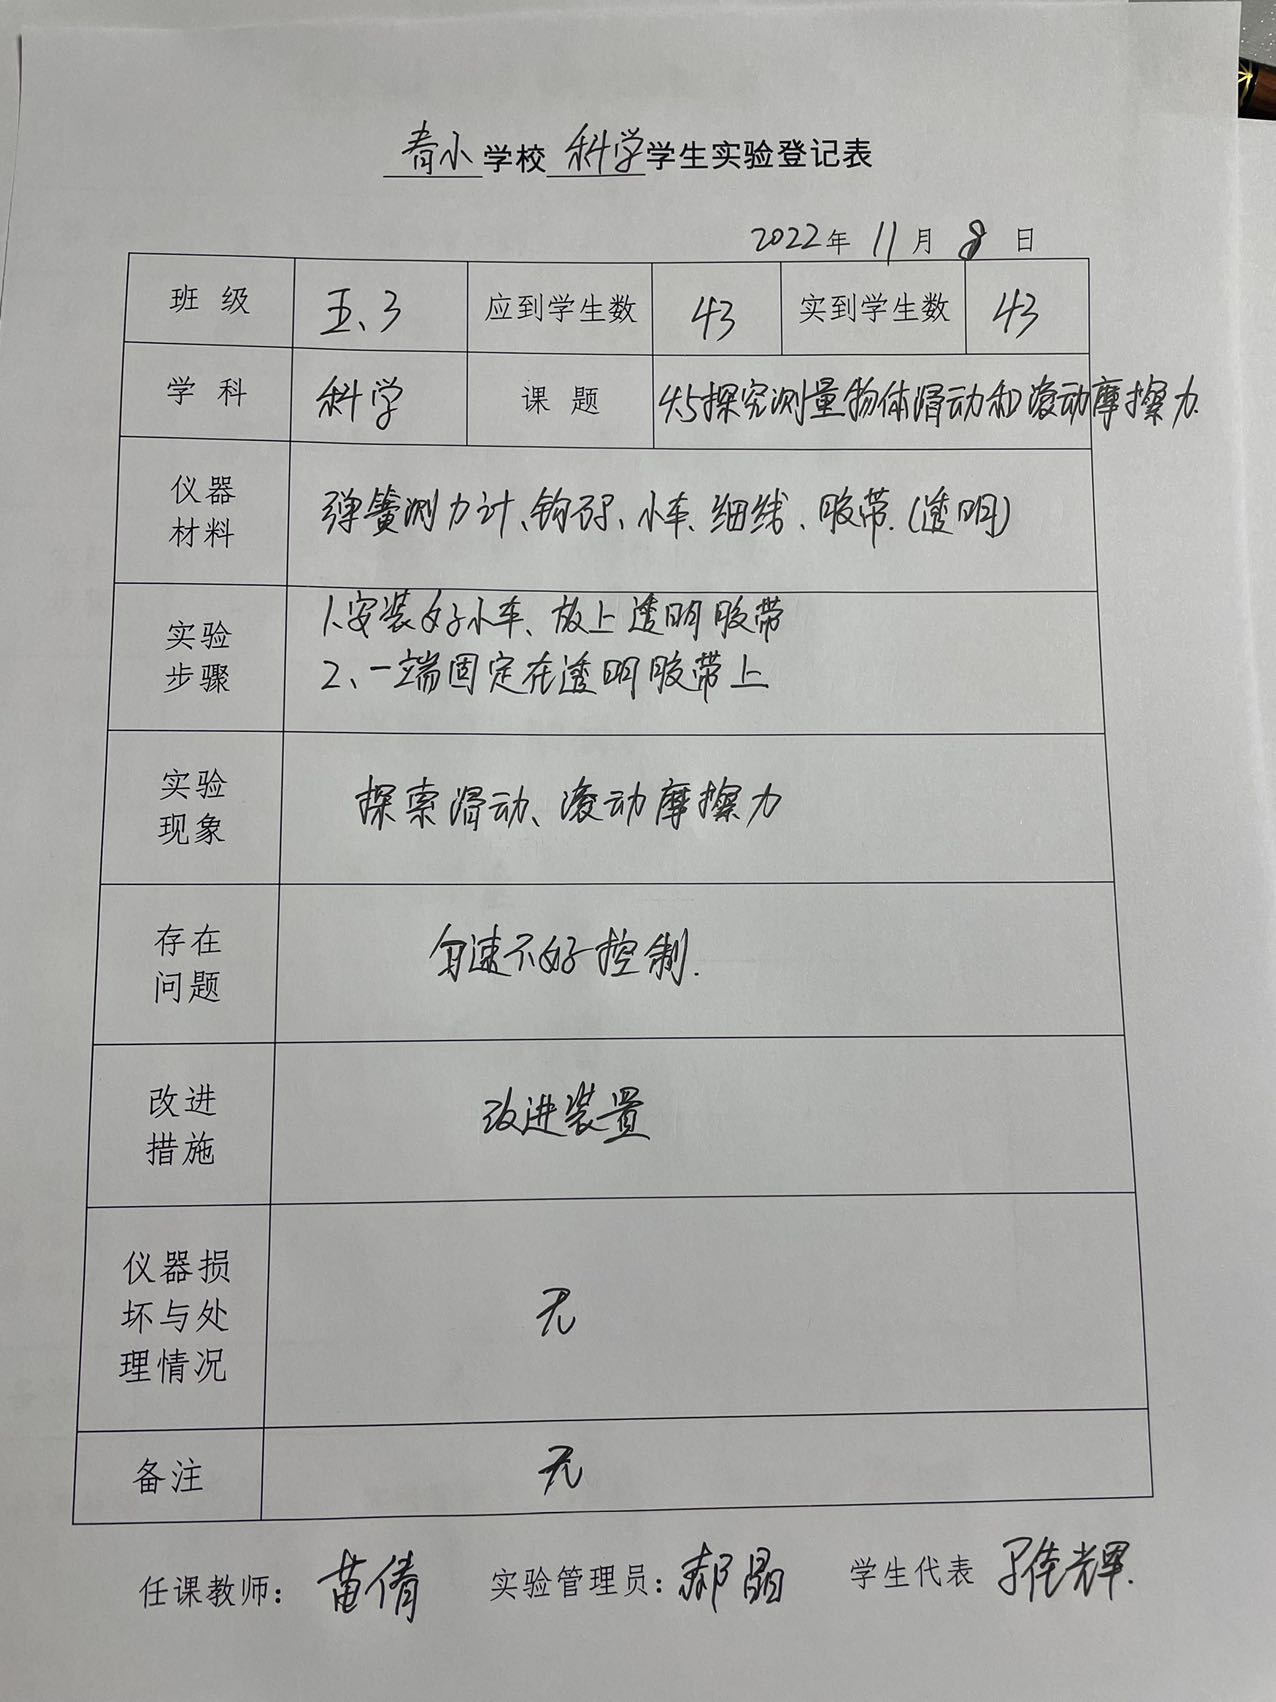 青小学校科学学生实验登记表
2022年 11月 8日
班级 五、3 应到学生数 43 实到学生数 43
学科 科学 课题 45探究测量物体滑动和滚动摩擦力.
仪器
材料
弹簧测力计、钩码、小车、细线、胶带.(透明)
实验
步骤
1.安装好小车、放上透明胶带
2、一端固定在透明胶带上
实验
现象
探索滑动、滚动摩擦力
存在
问题
匀速不好控制.
改进
措施
改进装置
仪器损
坏与处
理情况
无
备注 无
任课教师: 苗倩 实验管理员: 郝晶 学生代表